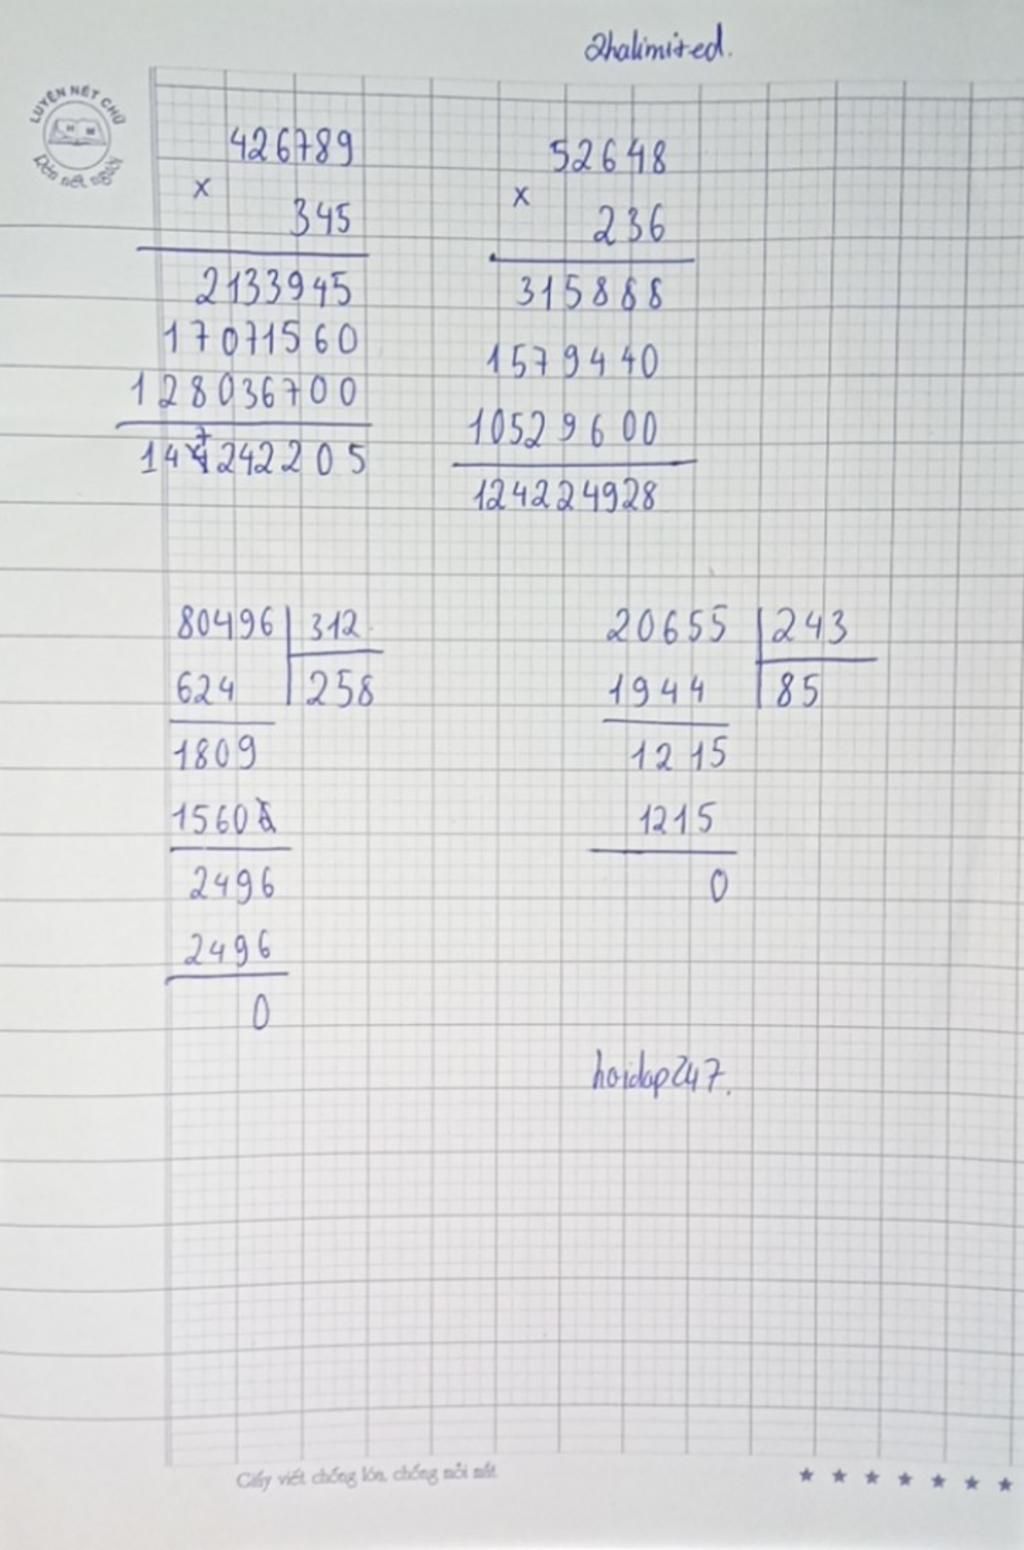 2halimited.
LUYỆN NÉT CHỮ
Rèn nết người
426789
x
345
2133945
17071560
128036700
147242205
52648
x
236
315888
1579440
10529600
124224928
80496 312
624 258
1809
1560
2496
2496
0
20655 243
1944 85
1215
1215
0
hoidap247.
Giấy viết chống lóa, chống mỏi mắt